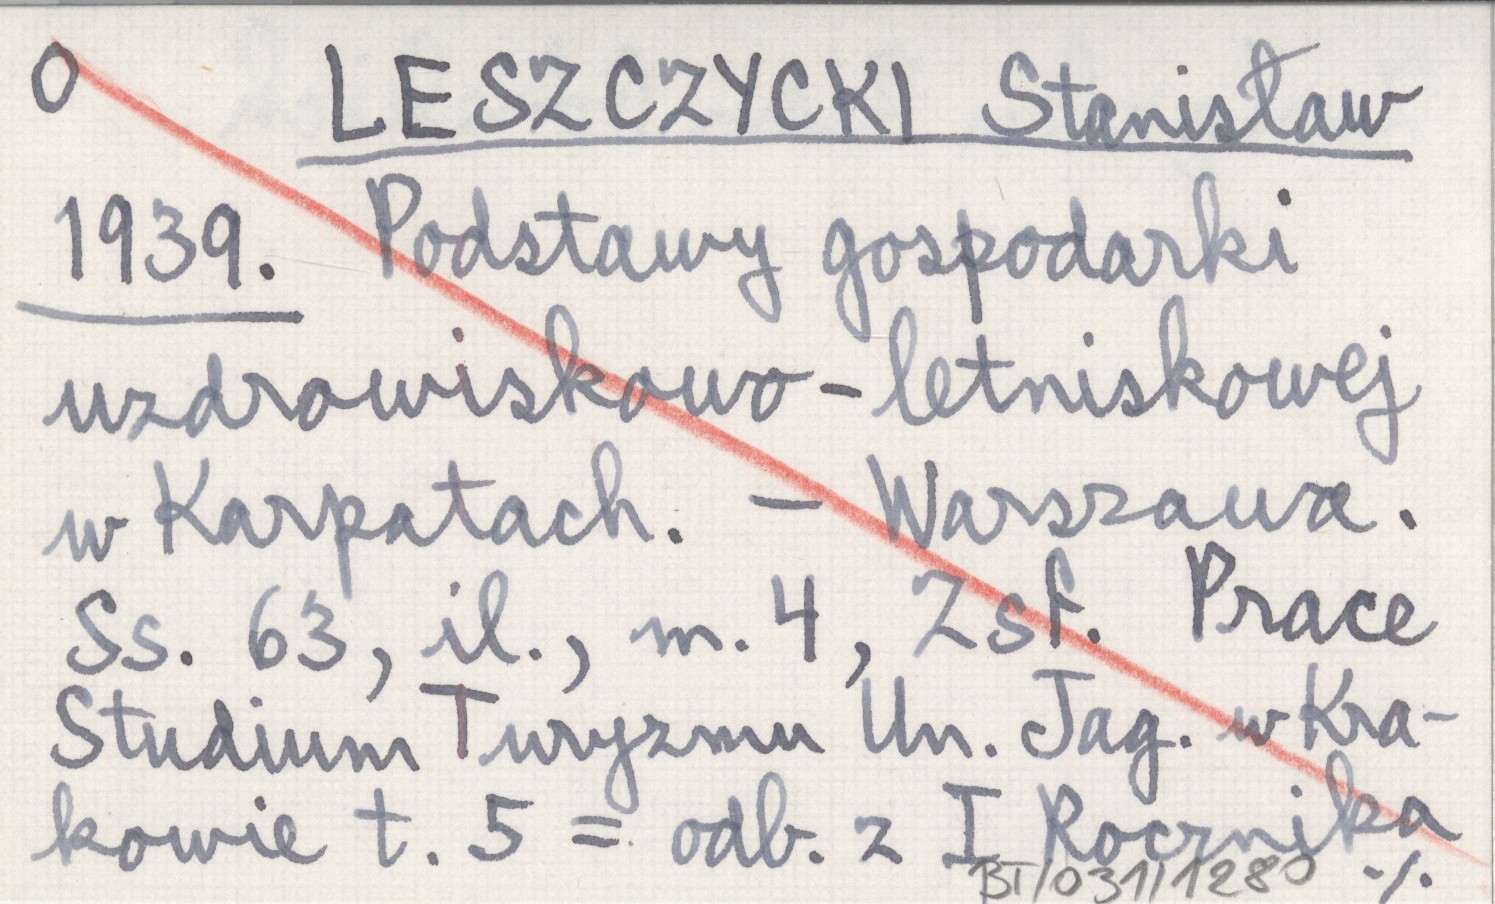 O LESZCZYCKI Stanisław
1939. Podstawy gospodarki
uzdrowiskowo-letniskowej
w Karpatach. - Warszawa.
Ss. 63, il., m. 4, Zsf. Prace
Studium Turyzmu Un. Jag. w Kra-
kowie t. 5 = odb. z I Rocznika
BT/031/1280 ./.